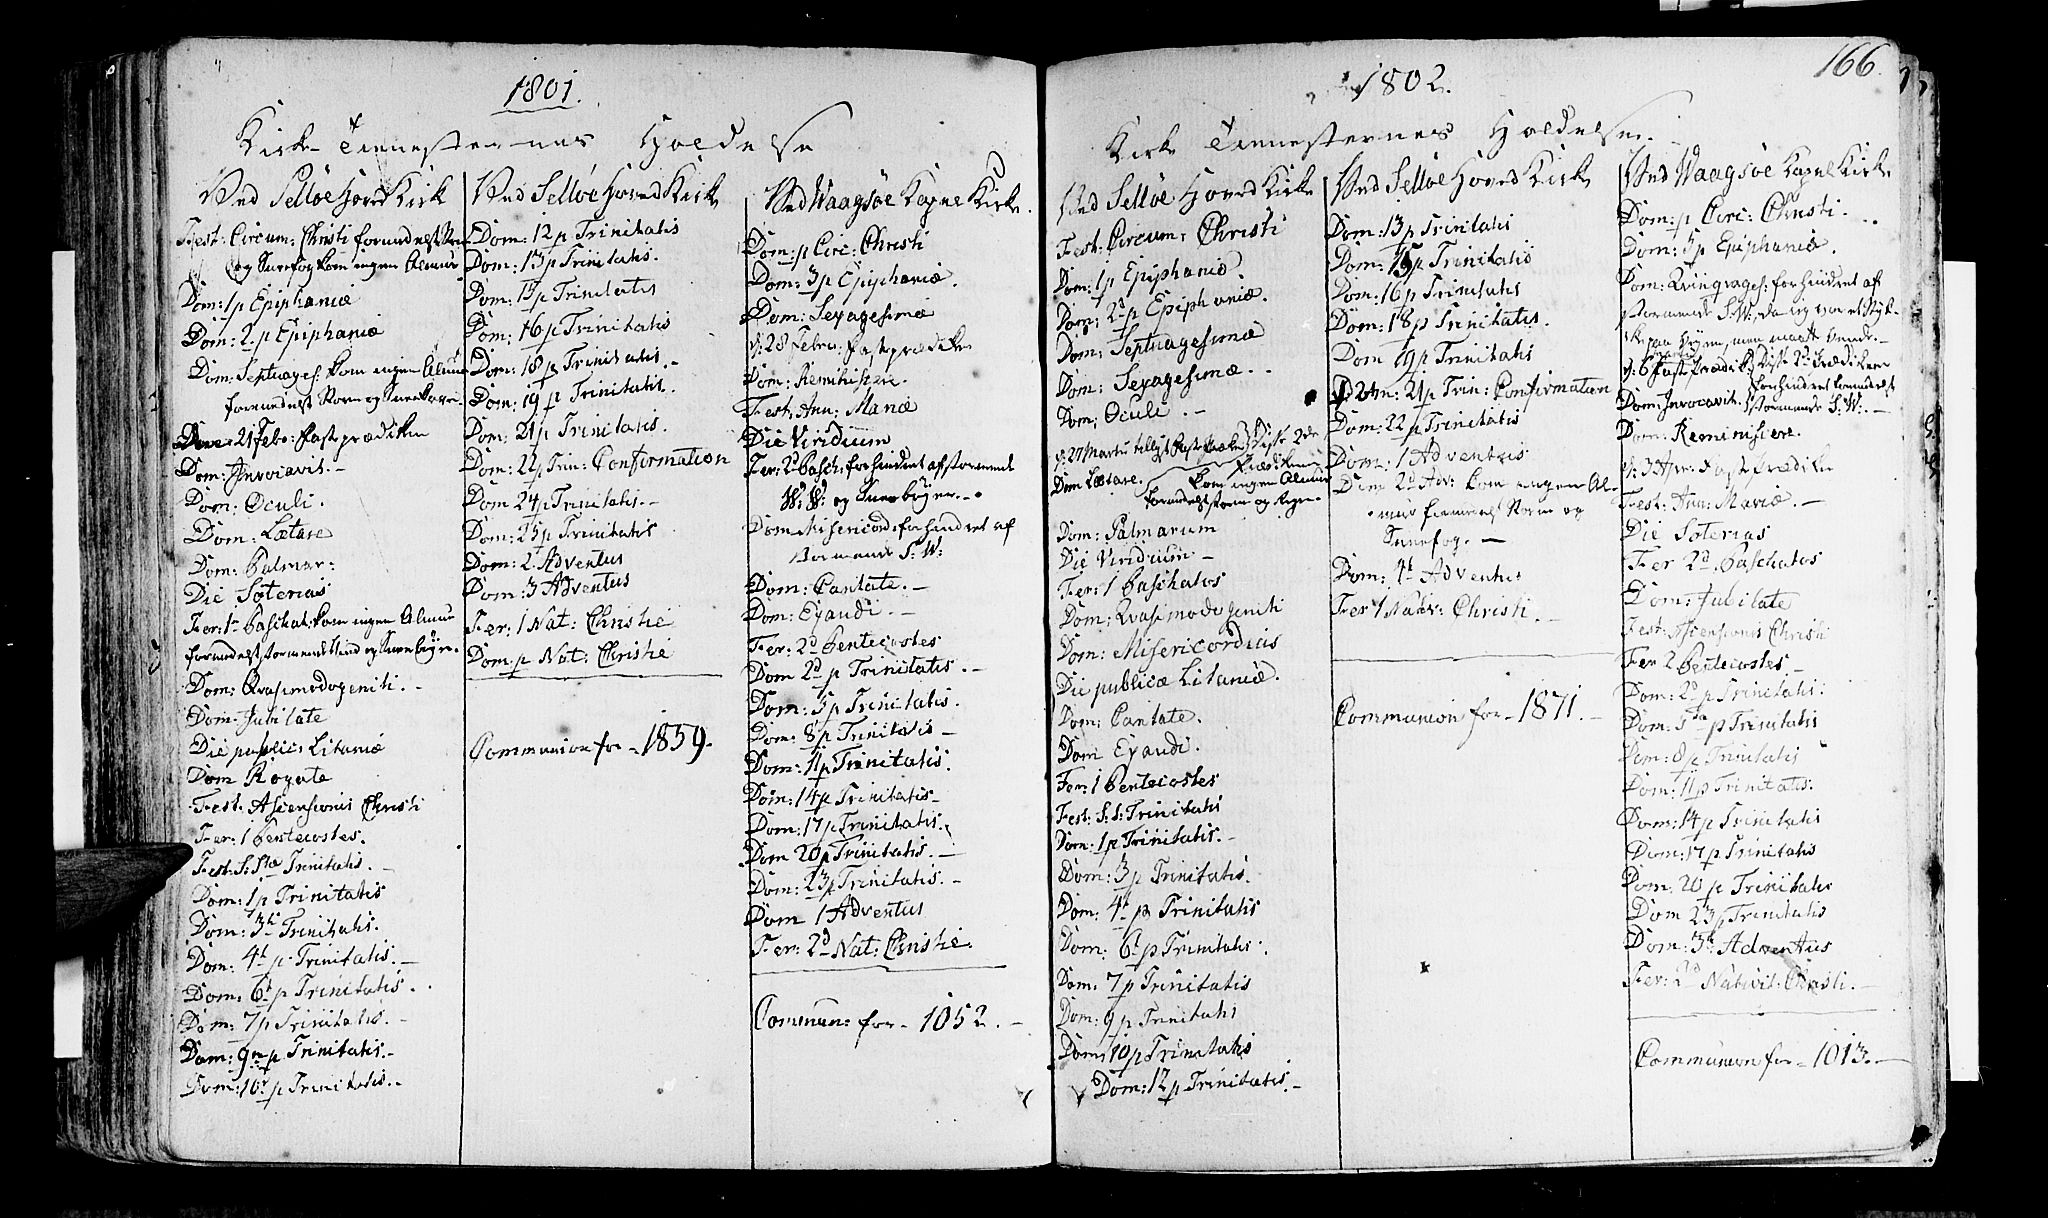 1801.
Kirke Tienesternes Holdelse
Ved Selløe Hoved Kirke
Fest: Circum: Christi formedelst Storm
og Sneefog kom ingen Almue
Dom: 1 p Epiphaniæ
Dom: 2 p Epiphaniæ
Dom: Septuages: kom ingen Almue
formedelst Storm og Sneekave.
21 Febr: Fasteprædiken
Dom: Invocavit. -
Dom: Oculi.
Dom: Lætare
Dom: Palmar:
Die Soterias
Fer: 1 Paschat: kom ingen Almue
formedelst stormende Vind og Snee Byger.
Dom: Qvasimodogeniti. -
Dom: Jubilate
Die public: Litaniæ
Dom Rogate
Fest: Ascensionis Christi
Fer: 1 Pentecostes.
Fest: S: Stæ Trinitatis.
Dom: 1 p Trinitatis
Dom: 3 Trinitatis.
Dom: 4 p Trinitatis. -
Dom: 6 p Trinitatis.
Dom: 7 p Trinitatis. -
Dom: 9 p Trinitatis. -
Dom: 10 p Trinitatis.
Ved Selløe Hoved Kirke
Dom: 12 p Trinitatis
Dom: 13 p Trinitatis.
Dom: 15 p Trinitatis
Dom: 16 p Trinitatis
Dom: 18 p Trinitatis. -
Dom: 19 p Trinitatis.
Dom: 21 p Trinitatis.
Dom: 22 p Trin: Confirmation
Dom 24 p Trinitatis. -
Dom: 25 p Trinitatis
Dom: 2 Adventus
Dom: 3 Adventus
Fer: 1 Nat: Christie
Dom: p Nat: Christie
Communion for - 1859.
Ved Waagsøe Kapel Kirke.
Dom: p Circ: Christi
Dom: 3 p Epiphaniæ.
Dom: Sexagesimæ
d: 28 Febr: Fasteprædiken
Dom: Reminiscere.
Fest: Ann: Mariæ
Die Viridium
Fer: 2d Pasch: forhindret af stormende
W: W: og Snee byger.
Dom Misericord: forhindret af
Stormende S: W:
Dom: Cantate. -
Dom: Exaudi. -
Fer: 2d Pentecostes
Dom 2d p Trinitatis. -
Dom: 5 p Trinitatis.
Dom: 8 p Trinitatis -
Dom: 11 p Trinitatis.
Dom: 14 p Trinitatis -
Dom: 17 p Trinitatis.
Dom 20 p Trinitatis. -
Dom: 23 p Trinitatis. -
Dom 1 Adventus
Fer: 2d Nat: Christie.
Commun: for - 1052. -
166.
1802.
Kirke Tienesternes Holdelse.
Ved Selløe Hoved Kirke
Fest: Circum: Christi
Dom: 1 p Epiphaniæ.
Dom: 2d p Epiphaniæ.
Dom: Septuagesimæ
Dom: Sexagesimæ.
Dom: Oculi. -
d: 27 Martii
Dom Lætare. kom ingen Almue
formedelst storm og Regn.
Dom: Palmarum
Die Viridium -
Fer: 1 Paschatos
Dom: Qvasimodogeniti
Dom: Misericordias
Die publicæ Litaniæ.
Dom: Cantate.
Dom Exaudi.
Fer: 1 Pentecostes
Fest: S: S: Trinitatis
Dom: 1 p Trinitatis. -
Dom: 3 p Trinitatis.
Dom: 4 p Trinitatis
Dom: 6 p Trinitatis.
Dom: 7 p Trinitatis
Dom: 9 p Trinitatis
Dom: 10 p Trinitatis
Dom: 12 p Trinitatis. -
Ved Selløe Hoved Kirke
Dom: 13 p Trinitatis
Dom: 15 p Trinitatis
Dom: 16 p Trinitatis
Dom: 18 p Trinitatis.
Dom 19 p Trinitatis
Dom: 21 p Trin: Confirmation
Dom: 22 p Trinitatis
Dom: 1 Adventus
Dom 2d Adv: kom ingen Al-
mue formedelst Storm og
Sneefog. -
Dom: 4 Adventus
Fer 1 Nativ: Christi. -
Communion for - 1871. -
Ved Waagsøe Kapel Kirke
Dom: p Circ: Christi.
Dom: 3 p Epiphaniæ.
Dom: Qvinqvages: forhindret af
stormende S. W: da jeg var et Styk-
ke paa Veyen, men maatte vende. -
Dom: Invocavit: stormende S. W: -
Dom: Reminiscere.
d: 3 Apr: Fasteprædiken
Fest: Ann: Mariæ. -
Die Soterias
Fer 2d Paschatos
Dom: Jubilate
Fest: Ascensionis Christi
Fer 2 Pentecostes -
Dom: 2d p Trinitatis.
Dom: 5 p Trinitatis
Dom: 8 p Trinitatis
Dom: 11 p Trinitatis.
Dom: 14 p Trinitatis
Dom: 17 p Trinitatis
Dom: 20 p Trinitatis
Dom 23 p Trinitatis
Dom: 3 Adventus
Fer: 2d Nativit: Christi. -
Communion for - 1013. -